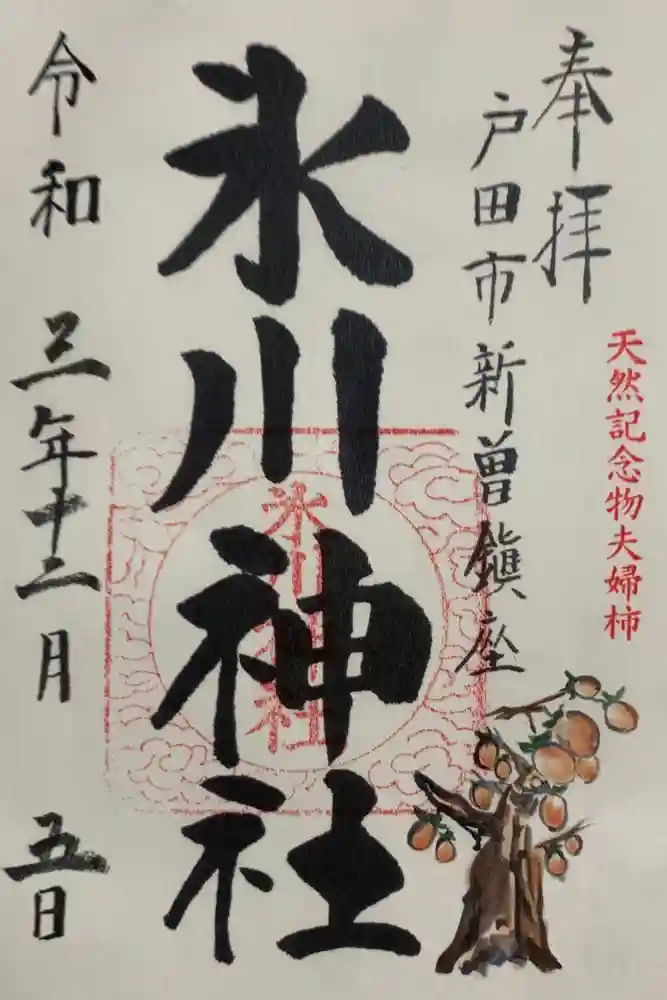 天然記念物夫婦柿
奉拝
戸田市新曽鎮座
氷川神社
氷川神社
令和三年十二月五日